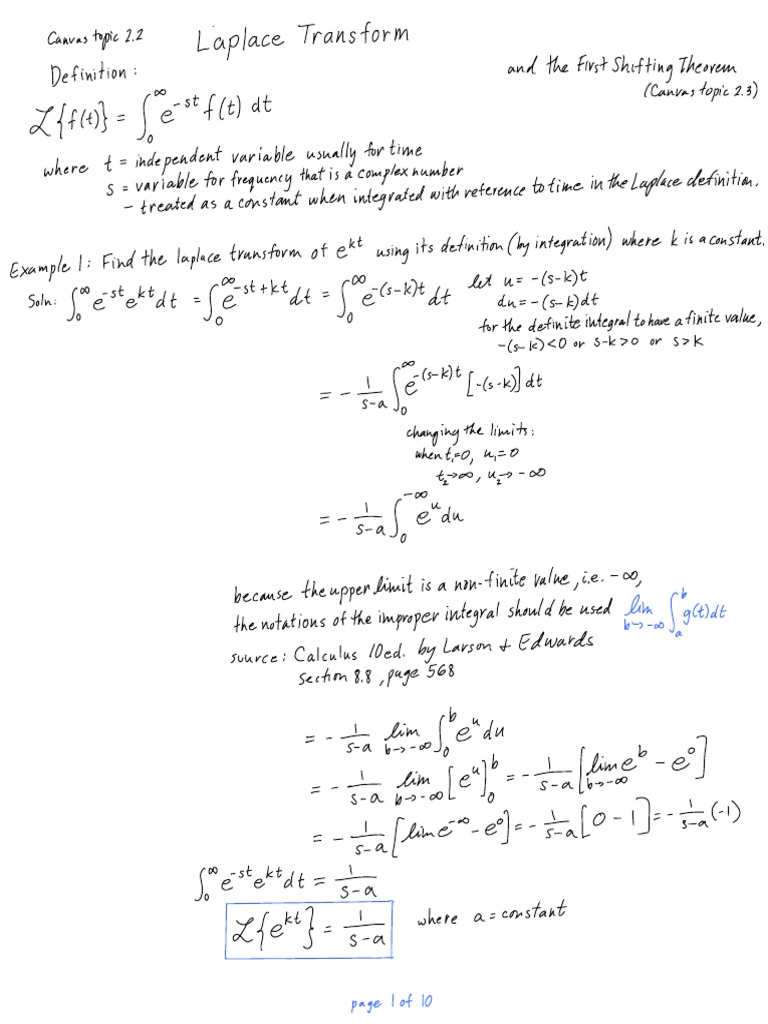 Canvas topic 2.2
Laplace Transform
and the First Shifting Theorem
(Canvas topic 2.3)
Definition:
ℒ{f(t)} = ∫₀^∞ e^(-st) f(t) dt
where t = independent variable usually for time
s = variable for frequency that is a complex number
- treated as a constant when integrated with reference to time in the Laplace definition.
Example 1: Find the laplace transform of e^(kt) using its definition (by integration) where k is a constant.
Soln: ∫₀^∞ e^(-st) e^(kt) dt = ∫₀^∞ e^(-st+kt) dt = ∫₀^∞ e^(-(s-k)t) dt
let u = -(s-k)t
du = -(s-k)dt
for the definite integral to have a finite value,
-(s-k)<0 or s-k>0 or s>k
= - 1/(s-a) ∫₀^∞ e^(-(s-k)t) [-(s-k)] dt
changing the limits:
when t₁=0, u₁=0
t₂→∞, u₂→ -∞
= - 1/(s-a) ∫₀^(-∞) e^u du
because the upper limit is a non-finite value, i.e. -∞,
the notations of the improper integral should be used lim b→-∞ ∫ₐ^b g(t)dt
source: Calculus 10ed. by Larson + Edwards
section 8.8, page 568
= - 1/(s-a) lim b→-∞ ∫₀^b e^u du
= - 1/(s-a) lim b→-∞ [e^u]₀^b = - 1/(s-a) [lim b→-∞ e^b - e^0]
= - 1/(s-a) [lim e^(-∞) - e^0] = - 1/(s-a) [0 - 1] = - 1/(s-a) (-1)
∫₀^∞ e^(-st) e^(kt) dt = 1/(s-a)
ℒ{e^(kt)} = 1/(s-a)
where a = constant
page 1 of 10